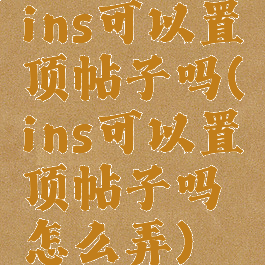 ins可以置
顶帖子吗(
ins可以置
顶帖子吗
怎么弄)